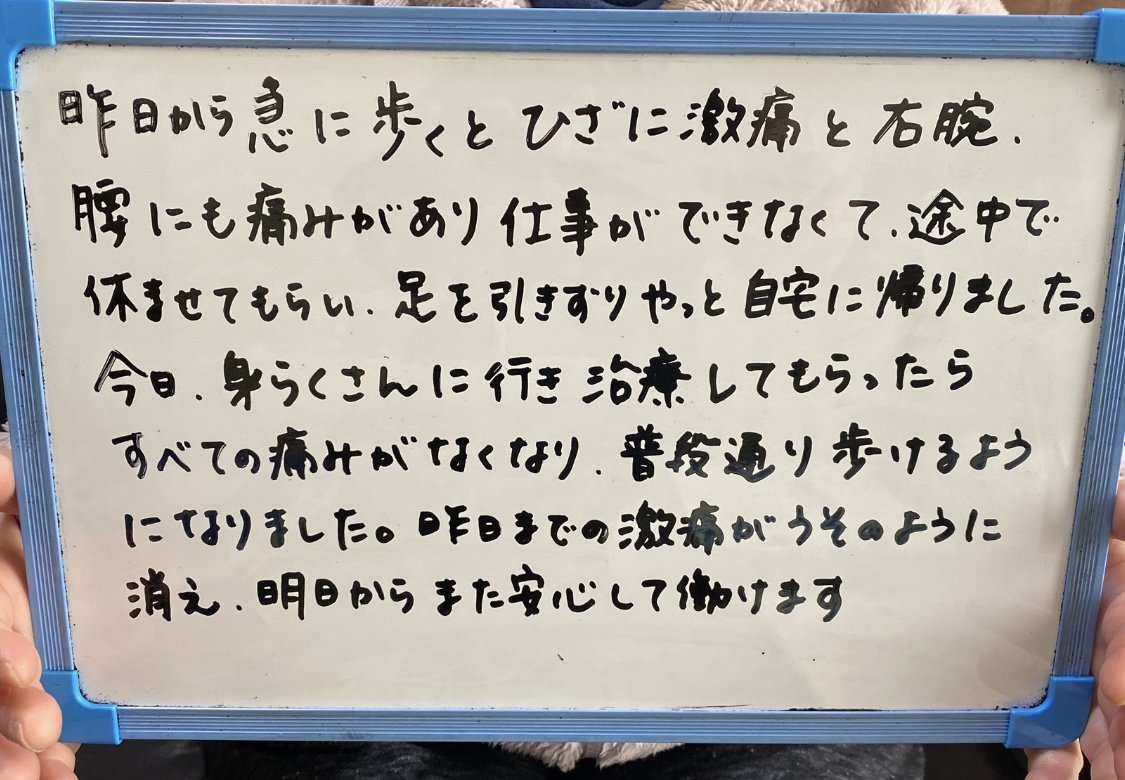 昨日から急に歩くとひざに激痛と右腕、
腰にも痛みがあり仕事ができなくて、途中で
休ませてもらい、足を引きずりやっと自宅に帰りました。
今日、身らくさんに行き治療してもらったら
すべての痛みがなくなり、普段通り歩けるよう
になりました。昨日までの激痛がうそのように
消え、明日からまた安心して働けます